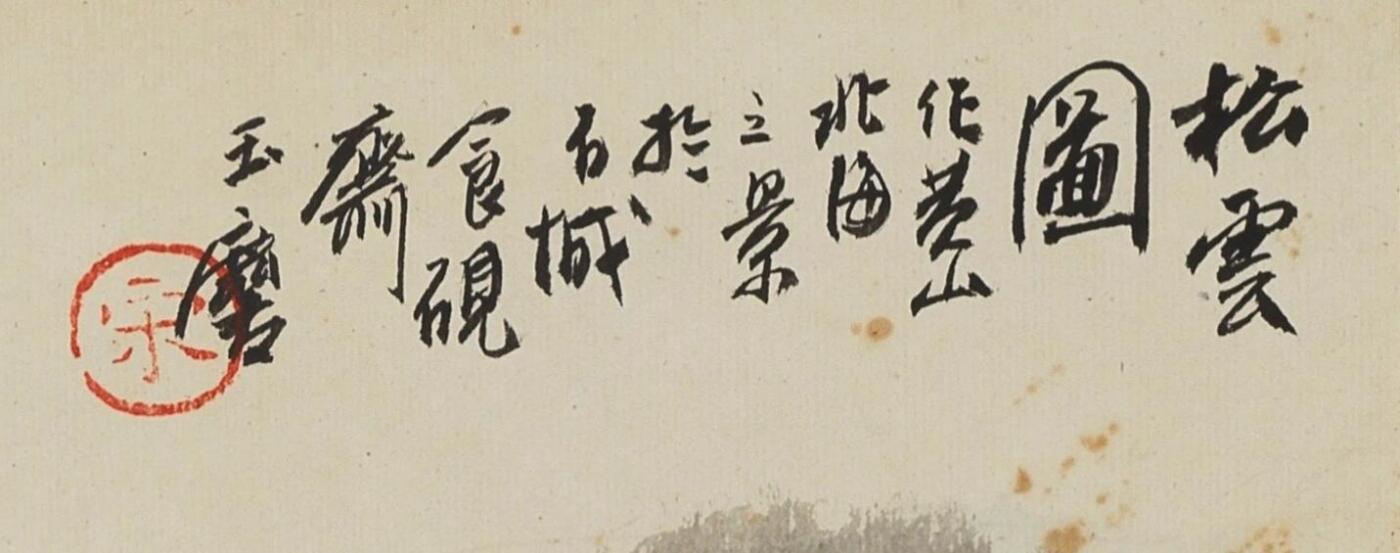 松雲
圖
作黄山
北海
之景
於
石城
食硯
齋
玉麐
宋